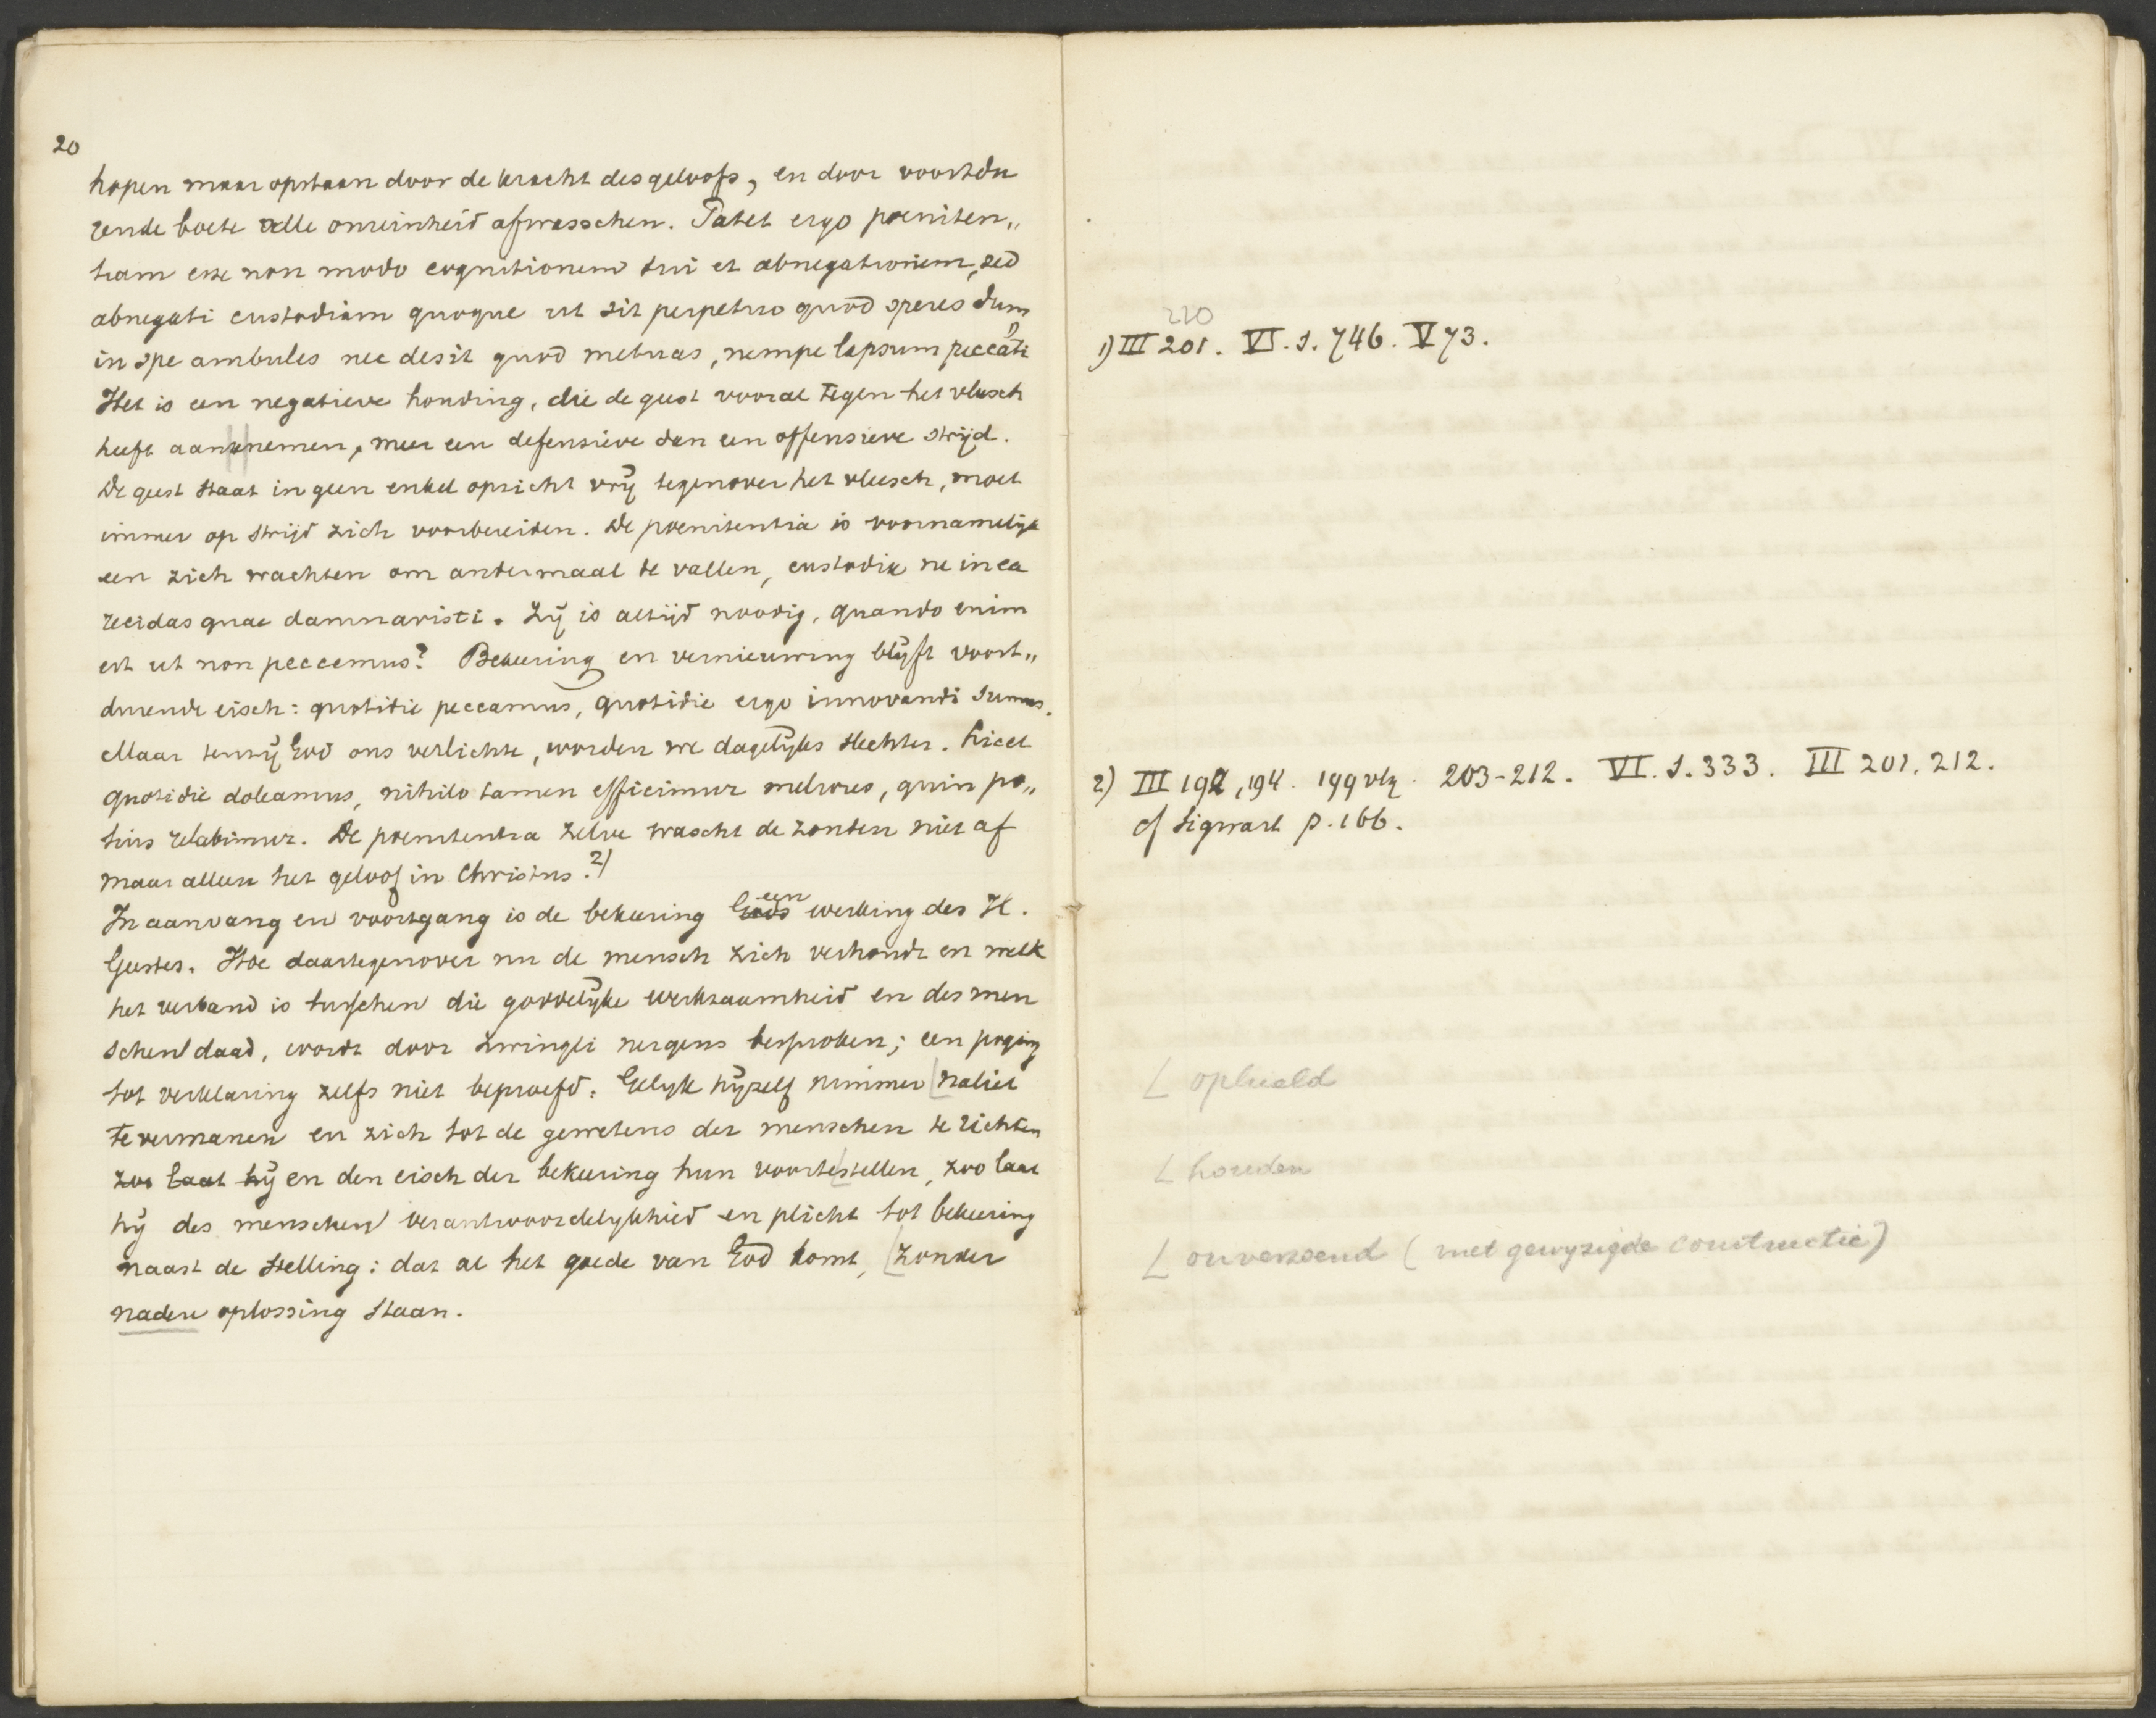 20
hopen maar opstaan door de kracht des geloofs, en door voortdu
rende boete alle onreinheid afwasschen. Patet ergo poeniten„
tiam esse non modo cognitionem tui et abnegationem, sed
abnegati custodiam quoque ut sit perpetuo quod speres dum
in spe ambules nec desit quod metuas, nempe lapsum peccati 1)
Het is een negatieve houding, die de geest vooral tegen het vleesch
heeft aan te nemen, meer een defensieve dan een offensieve strijd.
De geest staat in geen enkel opzicht vrij tegenover het vleesch, moet
immer op strijd zich voorbereiden. De poenitentia is voornamelijk
een zich wachten om andermaal te vallen, custodia ne in ea
recidas quae damnavisti. Zij is altijd noodig, quando enim
est ut non peccemus? Bekeering en vernieuwing blijft voort„
durende eisch: quotidie peccamus, quotidie ergo innovandi sumus.
Maar tenzij God ons verlichte, worden we dagelijks slechter. Licet
quotidie doleamus, nihilo tamen efficimur meliores, quin po„
tius relabimur. De poenitentia zelve wascht de zonden niet af
maar alleen het geloof in Christus. 2)
In aanvang en voortgang is de bekeering Gods een werking des H.
Geestes. Hoe daartegenover nu de mensch zich verhoudt en welk
het verband is tusschen die goddelijke werkzaamheid en des men
schen daad, wordt door Zwingli nergens besproken; een poging
tot verklaring zelfs niet beproefd. Gelijk hijzelf nimmer naliet
te vermanen en zich tot de gewetens der menschen te richten
zoo laat hij en den eisch der bekeering hun voor te stellen, zoo laat
hij des menschen verantwoordelijkheid en plicht tot bekeering
naast de stelling: dat al het goede van God komt, zonder
nadere oplossing staan.
220
1) III 201. VI. 1. 746. V 73.
2) III 192, 194. 199 vlg. 203-212. VI. 1. 333. III 201. 212.
cf Sigwart p. 166.
ophield
houden
onverzoend (met gewyzigde constructie)